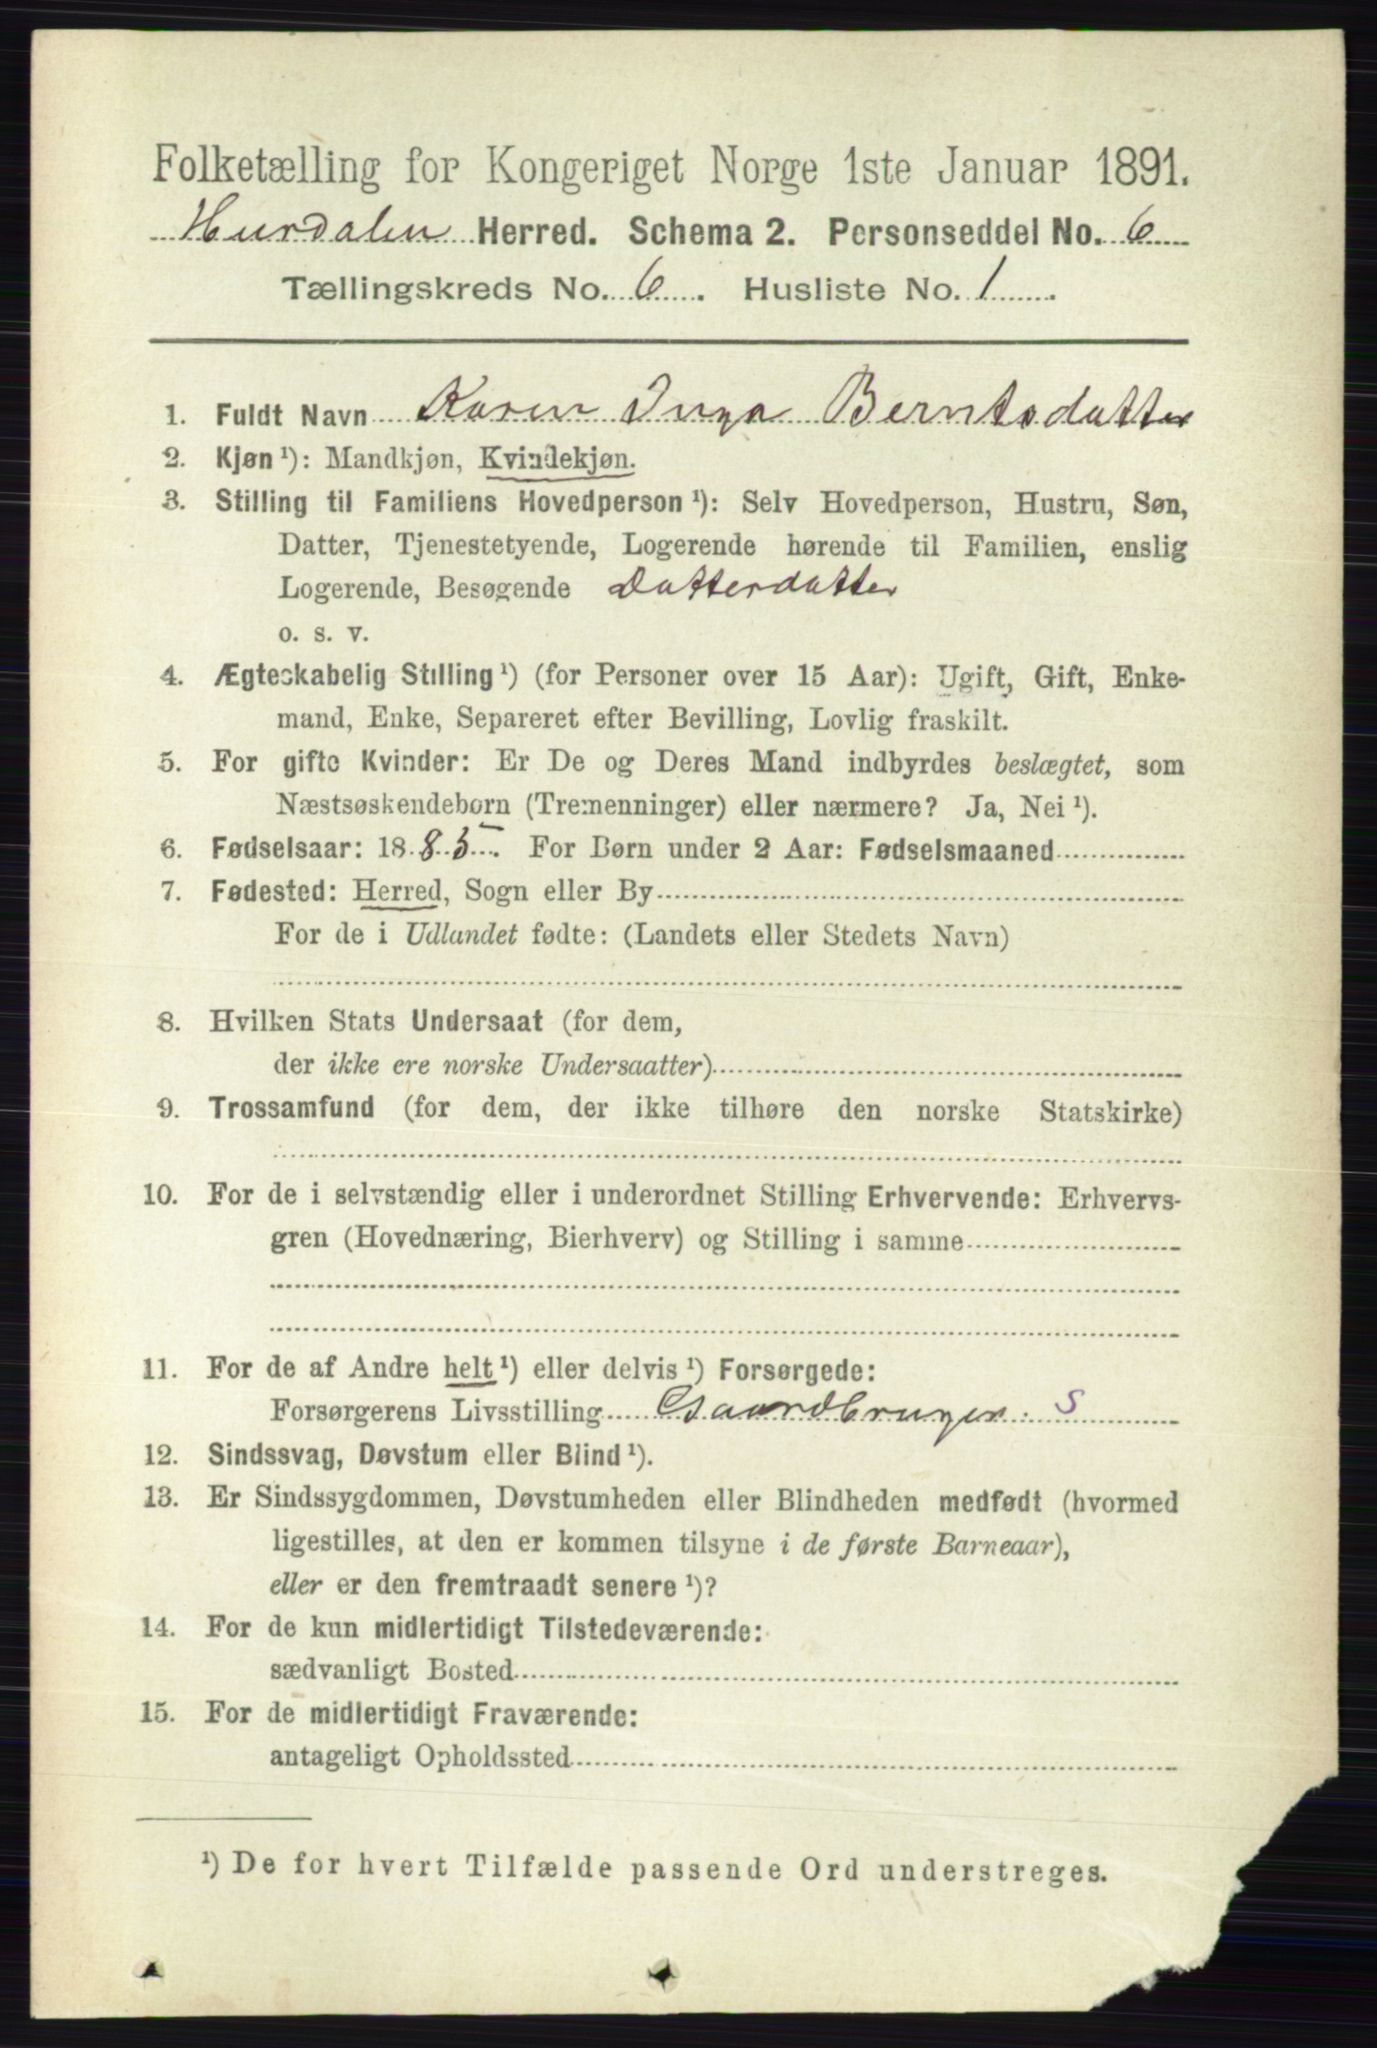 Folketælling for Kongeriget Norge 1ste Januar 1891.
Hurdalen Herred. Schema 2. Personseddel No. 6
Tællingskreds No. 6. Husliste No. 1.
1. Fuldt Navn Karen Inga Berntsdatter
2. Kjøn ¹): Mandkjøn, Kvindekjøn.
3. Stilling til Familiens Hovedperson ¹): Selv Hovedperson, Hustru, Søn,
Datter, Tjenestetyende, Logerende hørende til Familien, enslig
Logerende, Besøgende Datterdatter
o. s. v.
4. Ægteskabelig Stilling ¹) (for Personer over 15 Aar): Ugift, Gift, Enke-
mand, Enke, Separeret efter Bevilling, Lovlig fraskilt.
5. For gifte Kvinder: Er De og Deres Mand indbyrdes beslægtet, som
Næstsøskendeborn (Tremenninger) eller nærmere? Ja, Nei ¹).
6. Fødselsaar: 1885. For Børn under 2 Aar: Fødselsmaaned
7. Fødested: Herred, Sogn eller By
For de i Udlandet fødte: (Landets eller Stedets Navn)
8. Hvilken Stats Undersaat (for dem,
der ikke ere norske Undersaatter)
9. Trossamfund (for dem, der ikke tilhøre den norske Statskirke)
10. For de i selvstændig eller i underordnet Stilling Erhvervende: Erhvervs-
gren (Hovednæring, Bierhverv) og Stilling i samme
11. For de af Andre helt ¹) eller delvis ¹) Forsørgede:
Forsørgerens Livsstilling Gaardbruger. S
12. Sindssvag, Døvstum eller Blind ¹).
13. Er Sindssygdommen, Døvstumheden eller Blindheden medfødt (hvormed
ligestilles, at den er kommen tilsyne i de første Barneaar),
eller er den fremtraadt senere ¹)?
14. For de kun midlertidigt Tilstedeværende:
sædvanligt Bosted
15. For de midlertidigt Fraværende:
antageligt Opholdssted
¹) De for hvert Tilfælde passende Ord understreges.